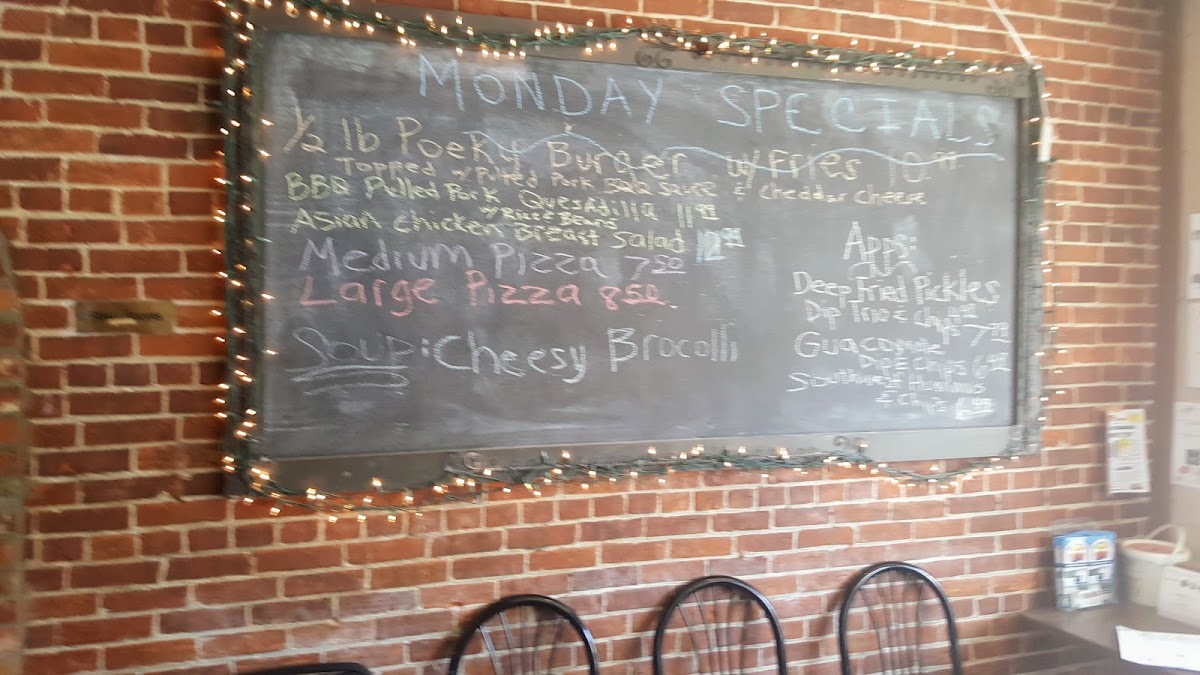 MONDAY SPECIALS
1/2 lb Poeky Burger w/ Fries 10.99
Topped w/ Pulled Pork BBQ Sauce & Cheddar Cheese
BBQ Pulled Pork Quesadilla 11.99
w/ Rice & Beans
Asian Chicken Breast Salad 12.99
Medium Pizza 7.50
Large Pizza 8.50
Soup: Cheesy Brocolli
Apps:
Deep Fried Pickles
Dip Trio & Chips 7.99
Guacamole
Dip & Chips 6.99
Southwest Hummus
& Chips 6.99